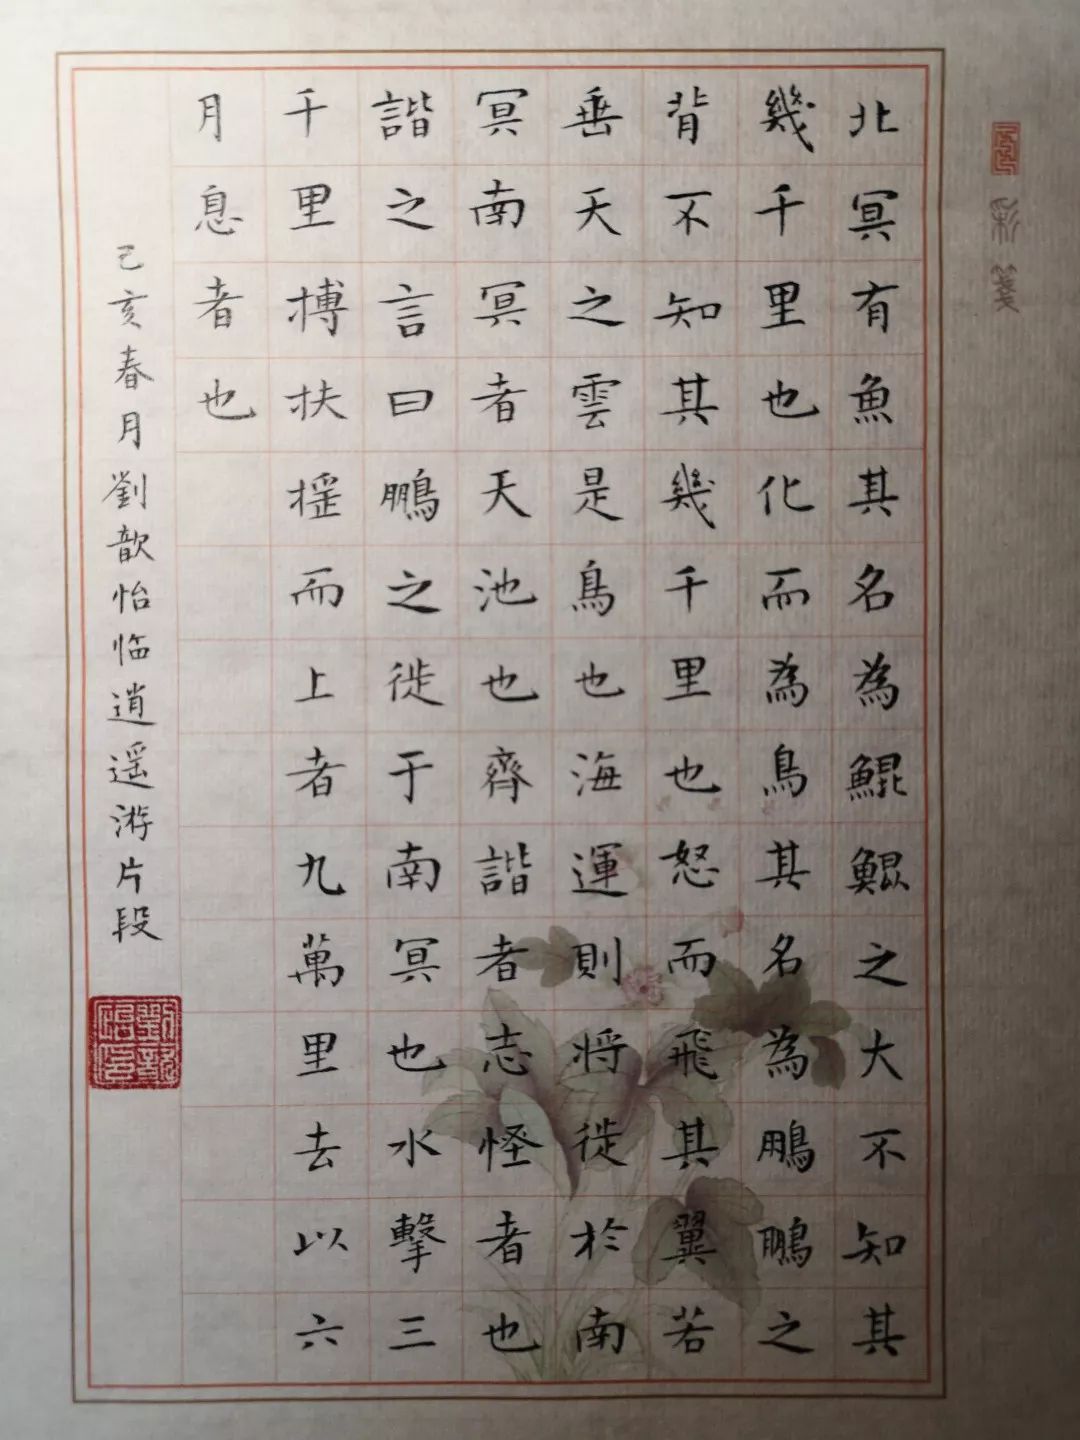 彩箋
北冥有魚其名為鯤鯤之大不知其
幾千里也化而為鳥其名為鵬鵬之
背不知其幾千里也怒而飛其翼若
垂天之雲是鳥也海運則將徙於南
冥南冥者天池也齊諧者志怪者也
諧之言曰鵬之徙于南冥也水擊三
千里搏扶摇而上者九萬里去以六
月息者也
己亥春月劉歆怡临逍遥游片段